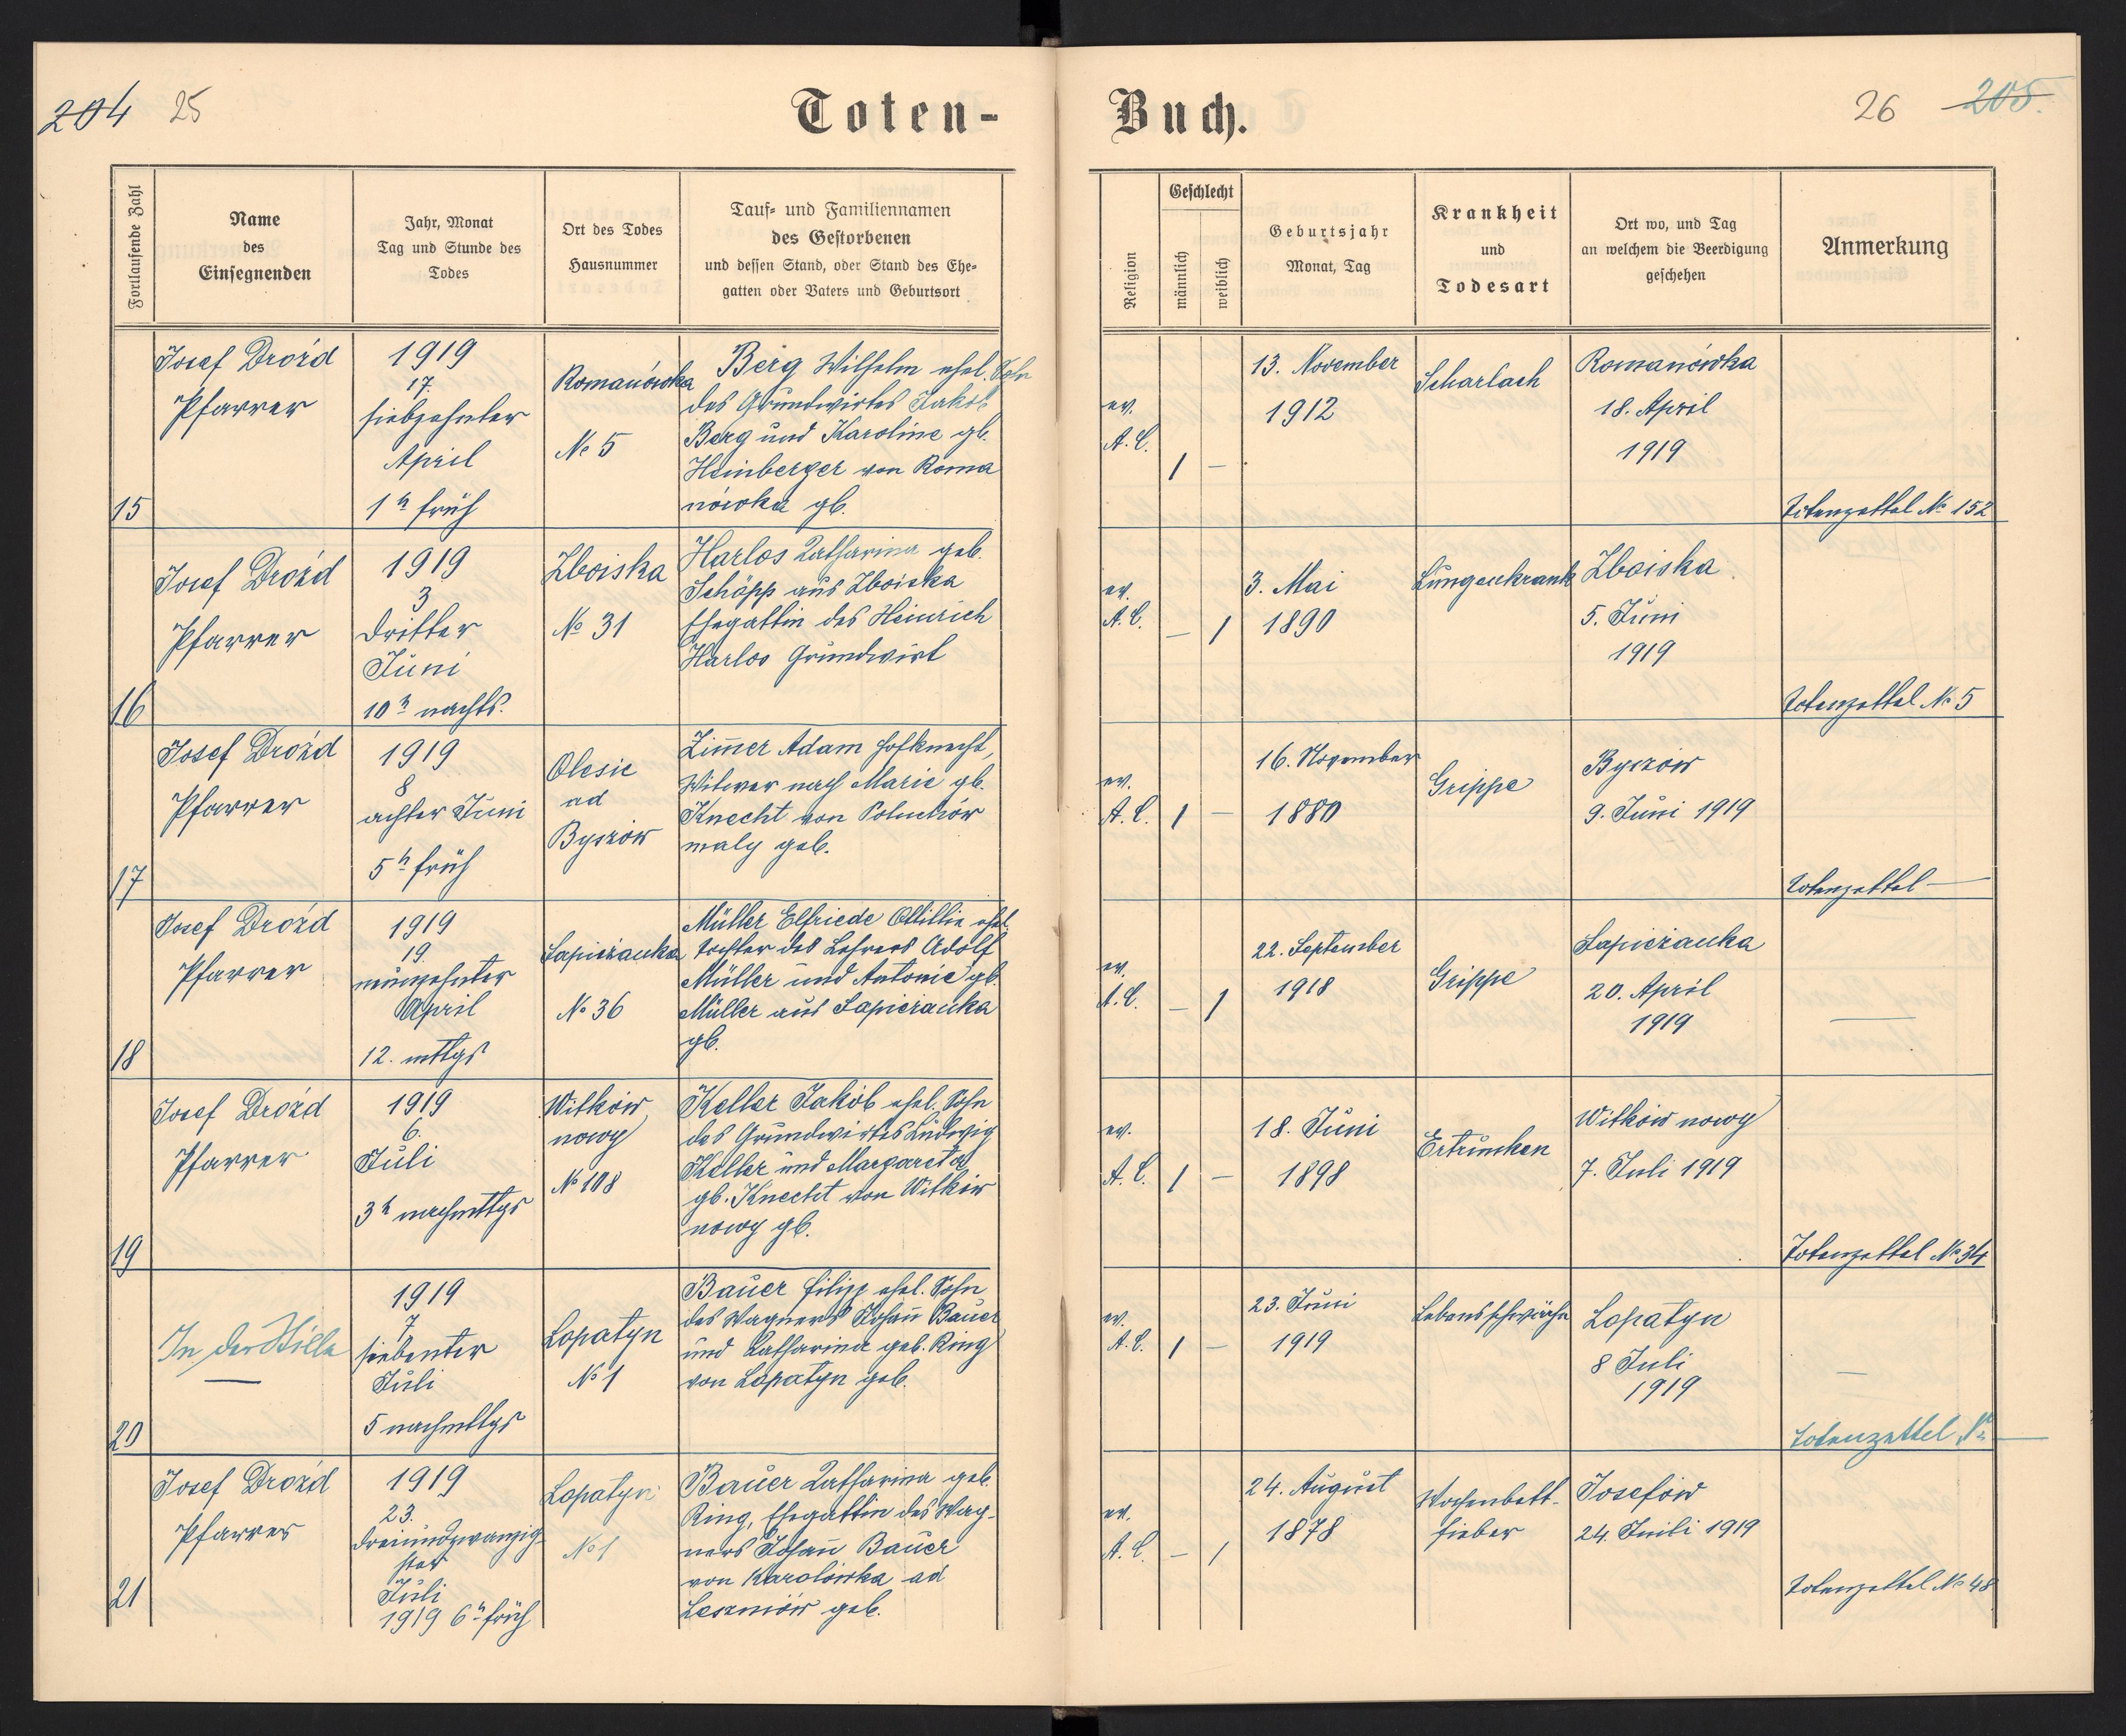 204 25
Toten-
Buch.
26 205.
Fortlaufende Zahl
Name
des
Einsegnenden
Jahr, Monat
Tag und Stunde des
Todes
Ort des Todes
Hausnummer
Tauf- und Familiennamen
des Gestorbenen
und dessen Stand, oder Stand des Ehe-
gatten oder Vaters und Geburtsort
Religion
Geschlecht
männlich
weiblich
Geburtsjahr
Monat, Tag
Krankheit
und
Todesart
Ort wo, und Tag
an welchem die Beerdigung
geschehen
Anmerkung
15
Josef Drożd
Pfarrer
1919
17.
siebzehnter
April
1 h früh
Romanówka
No 5
Berg Wilhelm ehel. Sohn
des Grundwirtes Jakob
Berg und Karoline gb.
Heinberger von Roma
nówka gb.
ev.
A.C.
1 —
13. November
1912
Scharlach
Romanówka
18. April
1919
Totenzettel No 152
16
Josef Drożd
Pfarrer
1919
3
dritter
Juni
10 h nachts.
Zboiska
No 31
Harlos Katharina geb.
Schöpp aus Zboiska
Ehegattin des Heinrich
Harlos Grundwirt
ev.
A.C.
— 1
3. Mai
1890
Lungenkrank
Zboiska
5. Juni
1919
Totenzettel No 5
17
Josef Drożd
Pfarrer
1919
8
achter Juni
5 h früh
Olesie
ad
Byszów
Zimmer Adam Hofknecht,
Witwer nach Marie gb.
Knecht von Poluchów
maly geb.
ev.
A.C.
1 —
16. November
1880
Grippe
Byszów
9. Juni 1919
Totenzettel —
18
Josef Drożd
Pfarrer
1919
19.
neunzehnter
April
12. mttgs
Sapieżanka
No 36
Müller Elfriede Ottillie ehel.
Tochter des Lehrers Adolf
Müller und Antonie gb.
Müller aus Sapieżanka
gb.
ev.
A.C.
— 1
22. September
1918
Grippe
Sapieżanka
20. April
1919
—
19
Josef Drożd
Pfarrer
1919
6.
Juli
3 h nachmttgs
Witków
nowy
No 108
Keller Jakob ehel. Sohn
des Grundwirtes Ludwig
Keller und Margareta
gb. Knecht von Witków
nowy gb.
ev.
A.C.
1 —
18. Juni
1898
Ertrunken
Witków nowy
7. Juli 1919
Totenzettel No 34
20
In der Stille
—
1919
7
siebenter
Juli
5 nachmttgs
Lopatyn
No 1
Bauer Filipp ehel. Sohn
des Wagners Johann Bauer
und Katharina geb. Ring
von Lopatyn geb.
ev.
A.C.
1 —
23. Juni
1919
Lebensschwäche
Lopatyn
8 Juli
1919
—
Totenzettel No —
21
Josef Drożd
Pfarrer
1919
23.
dreiundzwanzig-
ster
Juli
1919 6 h früh
Lopatyn
No 1
Bauer Katharina geb.
Ring, Ehegattin des Wag-
ners Johann Bauer
von Karolówka ad
Leszniów geb.
ev.
A.C.
— 1
24. August
1878
Wochenbett-
fieber
Josefów
24. Juili 1919
Totenzettel No 48